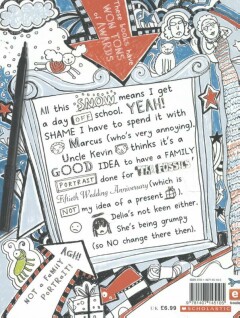 These books have
WON TONS
of AWARDS
All this SNOW means I get
a day OFF school. YEAH!
SHAME I have to spend it with
Marcus (who's very annoying).
Uncle Kevin thinks it's a
GOOD IDEA to have a FAMILY
PORTRAIT done for THE FOSSILS'
Fiftieth Wedding Anniversary (which is
NOT my idea of a present).
Delia's not keen either.
She's being grumpy
(so NO change there then).
AGH!
NOT a FAMILY
PORTRAIT!
UK £6.99
SCHOLASTIC